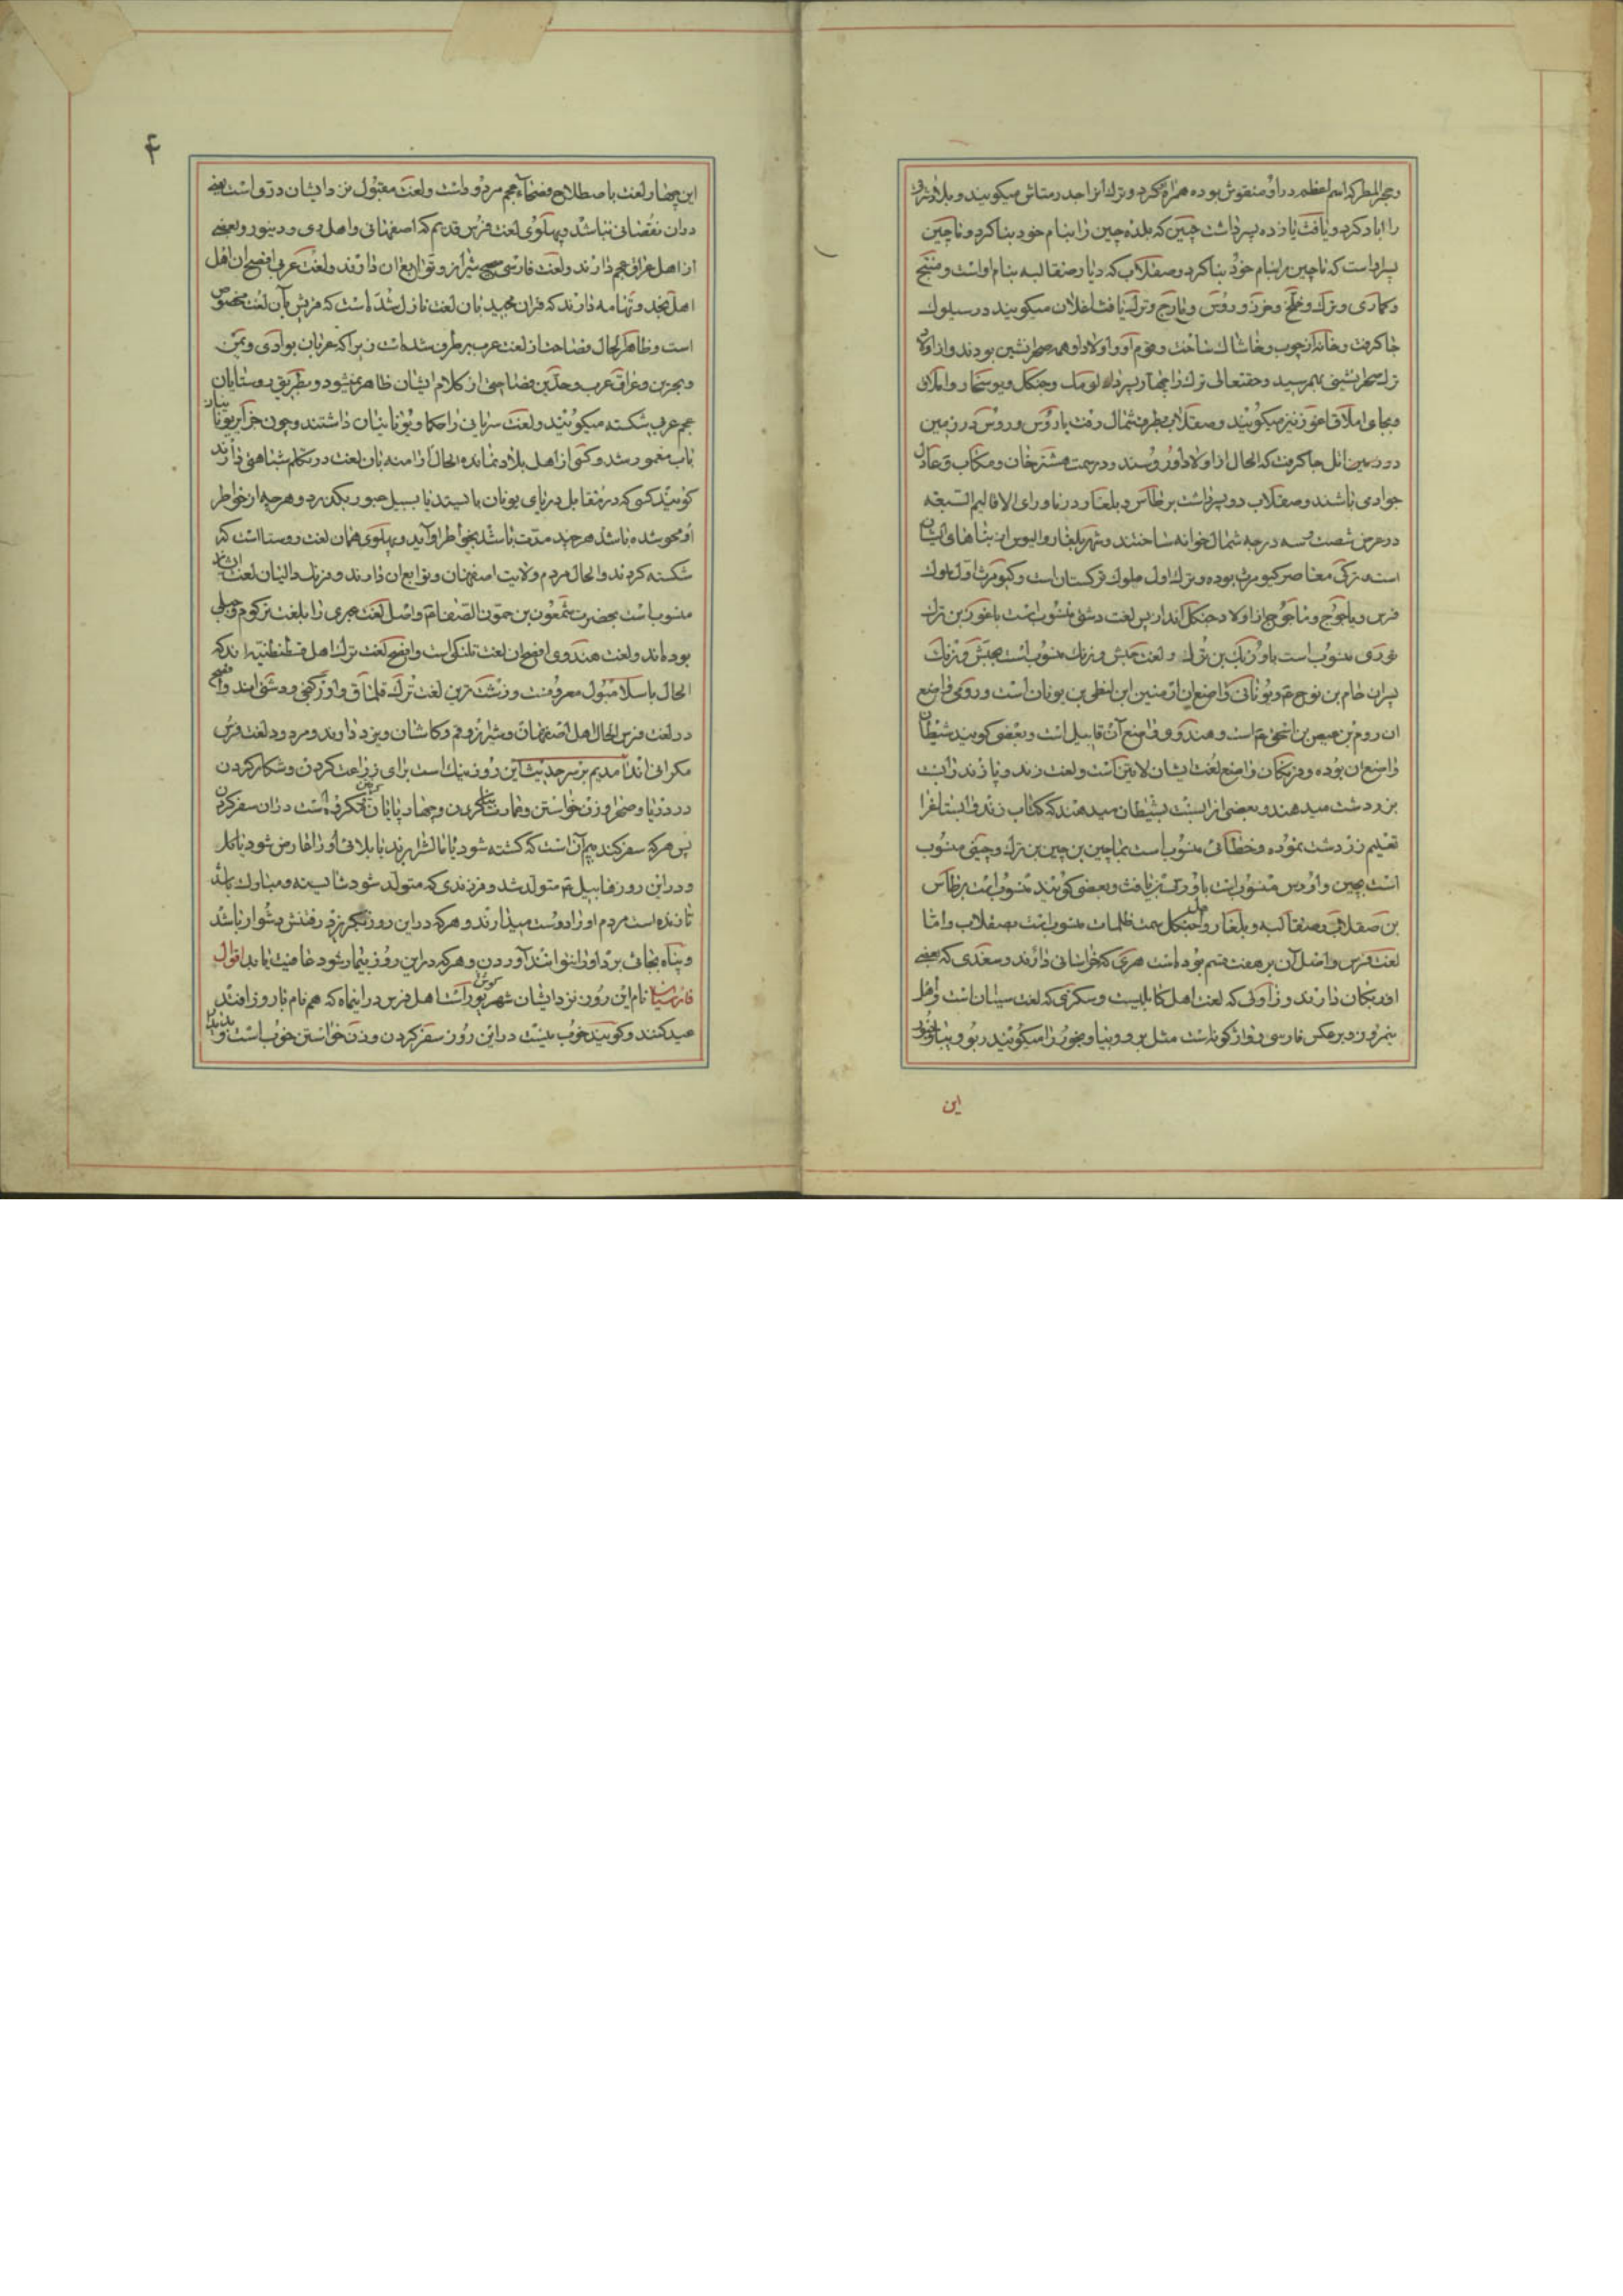 و حجر المطر که اسم اعظم در او منقوش بوده همراه کرد و ترکان از احد رمتاش میکویند و بلاد شرقی
را اباد کرد و یافث یازده پسر داشت چین که بلده چین را بنام خود بنا کرد و ماچین
پسر اواست که ماچین را بنام خود بنا کرد و صقلاب که دیار صقالبه بنام اواست و منسج
و کماری و ترک و خلج و خزر و روس و یارج و ترک یافث اغلان میکویند در سیلوک
جا کرفت و خانه از چوب و خاشاک ساخت و قوم او و اولاد او همه صحرانشین بودند و از اولاد
ترک صحرانشینی بهمرسید و حقتعالی ترک را چهار پسر داد
و بجای املاق غوز نیز میکویند و صقلاب بطرف شمال رفت با روس و روس در زمین
جا کرفت که الحال از اولاد او روسند و در سمت هشترخان و مکاب
جوادی باشند و صقلاب دو پسر داشت برطاس و بلغار و در ماورای الاقالیم السبعه
در عرض شصت و سه درجه شمال خوانه ساختند و شهر بلغار و الیوس از بناهای ایشان
است ترک معاصر کیومرث بوده و ترک اول ملوک ترکستان است و کیومرث اول ملوک
فرس و یاجوج و ماجوج از اولاد جنکل اند از پس لغت دشتی منسوب است باغور بن ترک
غوری منسوب است باوزبک بن ترک و لغت حبش و زنک منسوب است بحبش و زنک
پسران حام بن نوح ع و یونانی واضع ان ارمنین ابن لنطی بن یونان است و رومی واضع
ان روم بن عیص بن اسحق ع است و هندوی واضع آن قابیل است و بعضی کویند شیطان
واضع ان بوده و فرنکان واضع لغت ایشان لاتین است و لغت زند و پازند را نسبت
بزردشت میدهند و بعضی از را نسبت بشیطان میدهند که کتاب زند و ابستاغ را
تعلیم زردشت نموده و خطائی منسوب است بماچین بن چین بن ترک و چینی منسوب
است بچین و اوروس منسوب است باوروس بن یافث و بعضی کویند منسوب است ببرطاس
بن صقلاب و صقالبه و بلغار و اهل جنکل سمت ظلمات منسوب است بصقلاب و اما
لغت فرس و اصل آن بر هفت قسم بوده است هروی که خراسانی دارند و سغدی که بعضی
اذربکان دارند و زاولی که لغت اهل کابلیست و سکزی که لغت سیستان است و اهل
نیمروز و برعکس فارسی و وارکونه است مثل برو و بیا و بخور را میکویند ربو و
این
۴
این چهار لغت باصطلاح فصحاء عجم مردود است و لغت مقبول نزد ایشان دری است یعنی
در ان نقصانی نباشد و پهلوی لغت فرس قدیم که اصفهانی و اهل ری و دینور و بعضی
از اهل عراق عجم دارند و لغت فارسی شیراز و توابع ان دارند و لغت عربی افصح ان اهل
اهل نجد و تهامه دارند که قران مجید بان لغت نازل شده است که قریش بان لغت مخصوص
است و ظاهر الحال فصاحت از لغت عرب برطرف شده است زیرا که عربان بوادی و یمن
و بحرین و عراق عرب و حله بن فصاحتی از کلام ایشان ظاهر نمیشود و بطریق روستایان
عجم عربی شکسته میکویند و لغت سریانی را حکما و یونانیان داشتند و چون جزایر یونان
باب مغمور شد و کسی از اهل بلاد نمانده الحال ارامنه بان لغت در تکلم شباهتی دارند
کویند کسی که در مقابل دریای یونان بایستد یا بسبیل عبور بکذرد و هر چه از خواطر
او محو شده باشد هر چند مدت باشد بخواطر او آید و پهلوی همان لغت روستا است که
شکسته کردند و الحال مردم ولایت اصفهان و توابع ان دارند و فرنک و الینان لغت ایشان
منسوب است بحضرت شمعون بن حمون الصفا ع و اصل لغت عبری را بلغت ترکوم و جبلی
بوده اند و لغت هندوی افصح ان لغت تلنکی است و افصح لغت ترک اهل قسطنطنیه اند که
الحال باسلامبول معروفست و زشت ترین لغت ترک قلماق و اوزبکی و دشتی اند و افصح
در لغت فرس الحال اهل اصفهان و شیراز و قم و کاشان و یزد دارند و مردود لغت فرس
مکرانی اند آمدیم بر سر حدیث این روز نیک است برای زراعت کردن و شکار کردن
در دریا و صحرا و زن خواستن و عمارت بنا کردن و چهار پایان کرفتن مکروه است در ان سفر کردن
پس هر که سفر کند بیم آن است که کشته شود یا مالش را برند یا بلائی او را عارض شود یا کل
و در این روز هابیل ع متولد شد و فرزندی که متولد شود شایسته و مبارک باشد
تا زنده است مردم او را دوست میدارند و هر که در این روز بکریزد رفتنش دشوار باشد
و پناه بجائی برد او را نتوانند آوردن و هر که در این روز بیمار شود عافیت یابد اقوال
فارسیان نام این روز نزد ایشان شهریور است اهل فرس در اینماه که هم نام با روز افتد
عید کنند و کویند خوب نیست در این روز سفر کردن و زن خواستن خوب است و